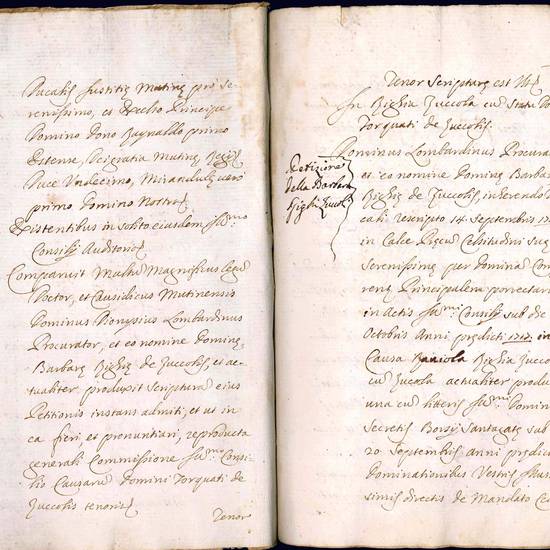 Ducalis Justitię Mutinę pro Se-
renissimo, et Excelso Principe
Domino Dono Raynaldo primo
Estense, Regij
Duce Undecimo, Mirandulę vero
primo Domino Nostro
Existentibus in solito eiusdem
Consilij Auditorio
Comparuit Magnificus Legum
Doctor, et Causidicus Mutinensis
Dominus Dionysius Lombardinus
Procurator, et eo nomine Dominę
Barbarę Biglię de Zuccolis, et ac-
tualiter produxit Scripturam eius
Petitionis instans admitti, et ut in
ea fieri, et pronuntiari, reproducta
generali Commissione Consi-
lio Causarum Domini Torquati de
Zuccolis tenoris
Tenor
Tenor Scripturę est
In Biglia Zuccola cum Statu
Torquati de Zuccolis.
Petizione
della Barbara
Bigli Zuccoli
Dominus Lombardinus Procura
et eo nomine Dominę Barbar
Biglię de Zuccolis, inherendo
cali rescripto 14 Septembris
in Calce Precum Celsitudini
Serenissimę per Dominam
Principalem porrectar
in Actis Consilij sub die
Octobris Anni predicti 1717 in
Causa Biglia Zuccola
cum Zuccola actualiter produ
una cum litteris Domini
Secretis Borsij Santagatę sub
20 Septembris anni predict
Dominationibus Vestris Illus
simis directis de Mandato